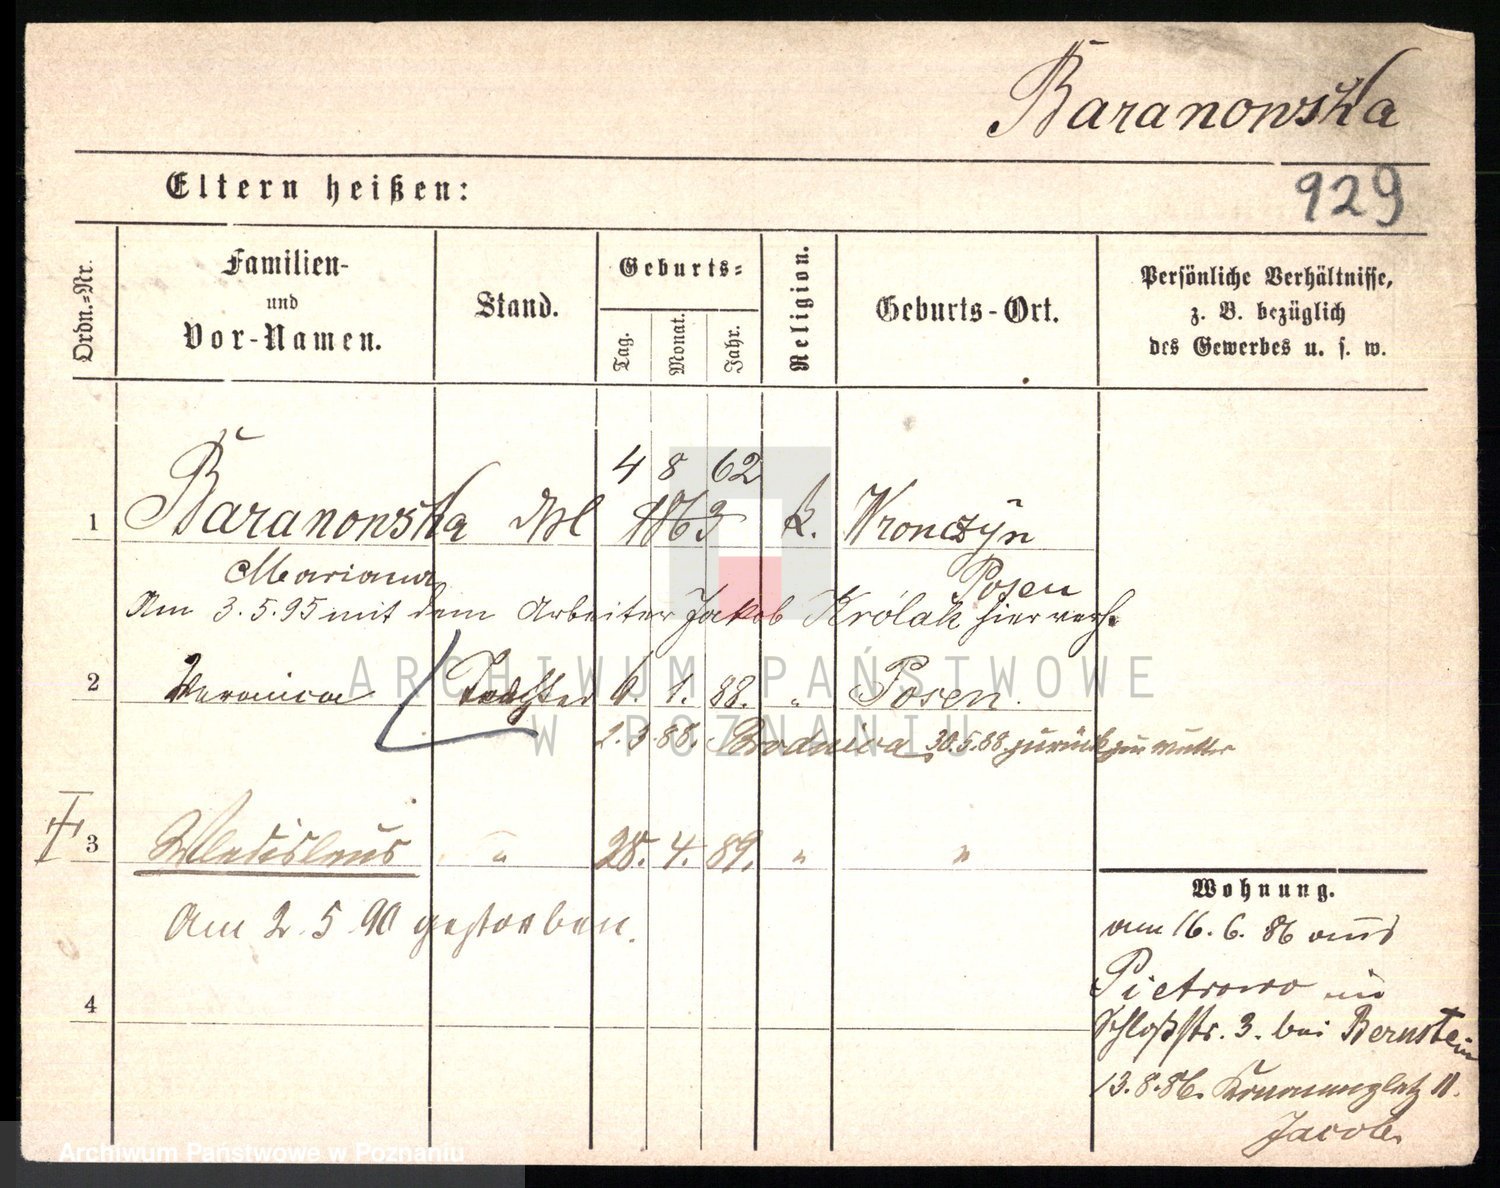 Baranowska
929
Eltern heißen:
Ordn.-Nr.
Familien-
und
Vor-Namen.
Stand.
Geburts-
Tag. Monat. Jahr.
Religion.
Geburts-Ort.
Persönliche Verhältnisse,
z. B. bezüglich
des Gewerbes u. s. w.
4 8 62
1 Baranowska 1863 k. Wronczyn
Mariana Posen
Am 3.5.95 mit dem Arbeiter Jakob Królak hier verh.
2 Veronica Tochter 6. 1. 88. " Posen.
2.3.88. Brodnica 30.5.88 zurück zur Mutter
3 Wladislaus " 28. 4. 89. " "
Am 2.5.90 gestorben.
4
Wohnung.
am 16.6.86 aus
Pietrowo in
Schloßstr. 3. bei Bernstein
13.8.86. 11.
Jacob
ARCHIWUM PAŃSTWOWE
W POZNANIU
Archiwum Państwowe w Poznaniu